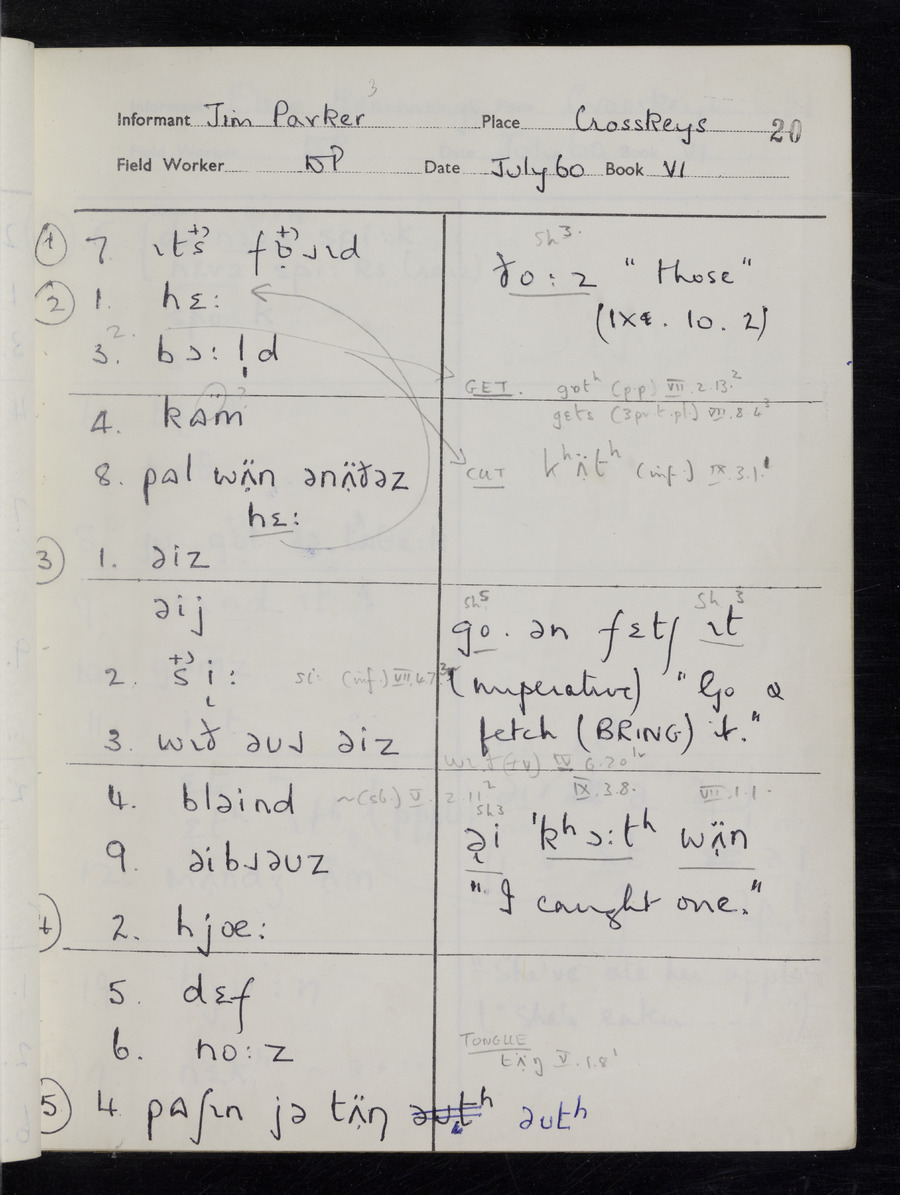 3
Informant Jim Parker Place Crosskeys 20
Field Worker DP Date July 60 Book VI
① 7. ɪts fɒɹɪd
② 1. hɛ:
3. bɔ:l̩d
4. kɑm
8. pɑl wʌ̈n ənʌ̈ðəz
hɛ:
③ 1. əiz
əij
2. si: si: (inf.) VII.4.7
3. wɪð əʊɹ əiz
4. bləind ~(sb.) V.2.11²
9. əibɹəʊz
④ 2. hjœ:
5. dɛf
6. no:z
⑤ 4. pɑʃɪn jə tʌ̈ŋ əʊtʰ əʊtʰ
Sh³.
ðo:z "those"
(IX. 10. 2)
GET. gɒtʰ (p.p.) VII.2.13.²
gets (3 pr. t. pl.) VII.8.4³
CUT kʰʌ̈tʰ (inf.) IX.3.1.¹
Sh⁵ Sh 3
go. ən fɛtʃ ɪt
(imperative) "Go &
fetch (BRING) it."
IX.3.8. VII.1.1.
Sh3
əi ˈkʰɔ:tʰ wʌ̈n
"I caught one."
TONGUE
tʌ̈ŋ V.1.8¹